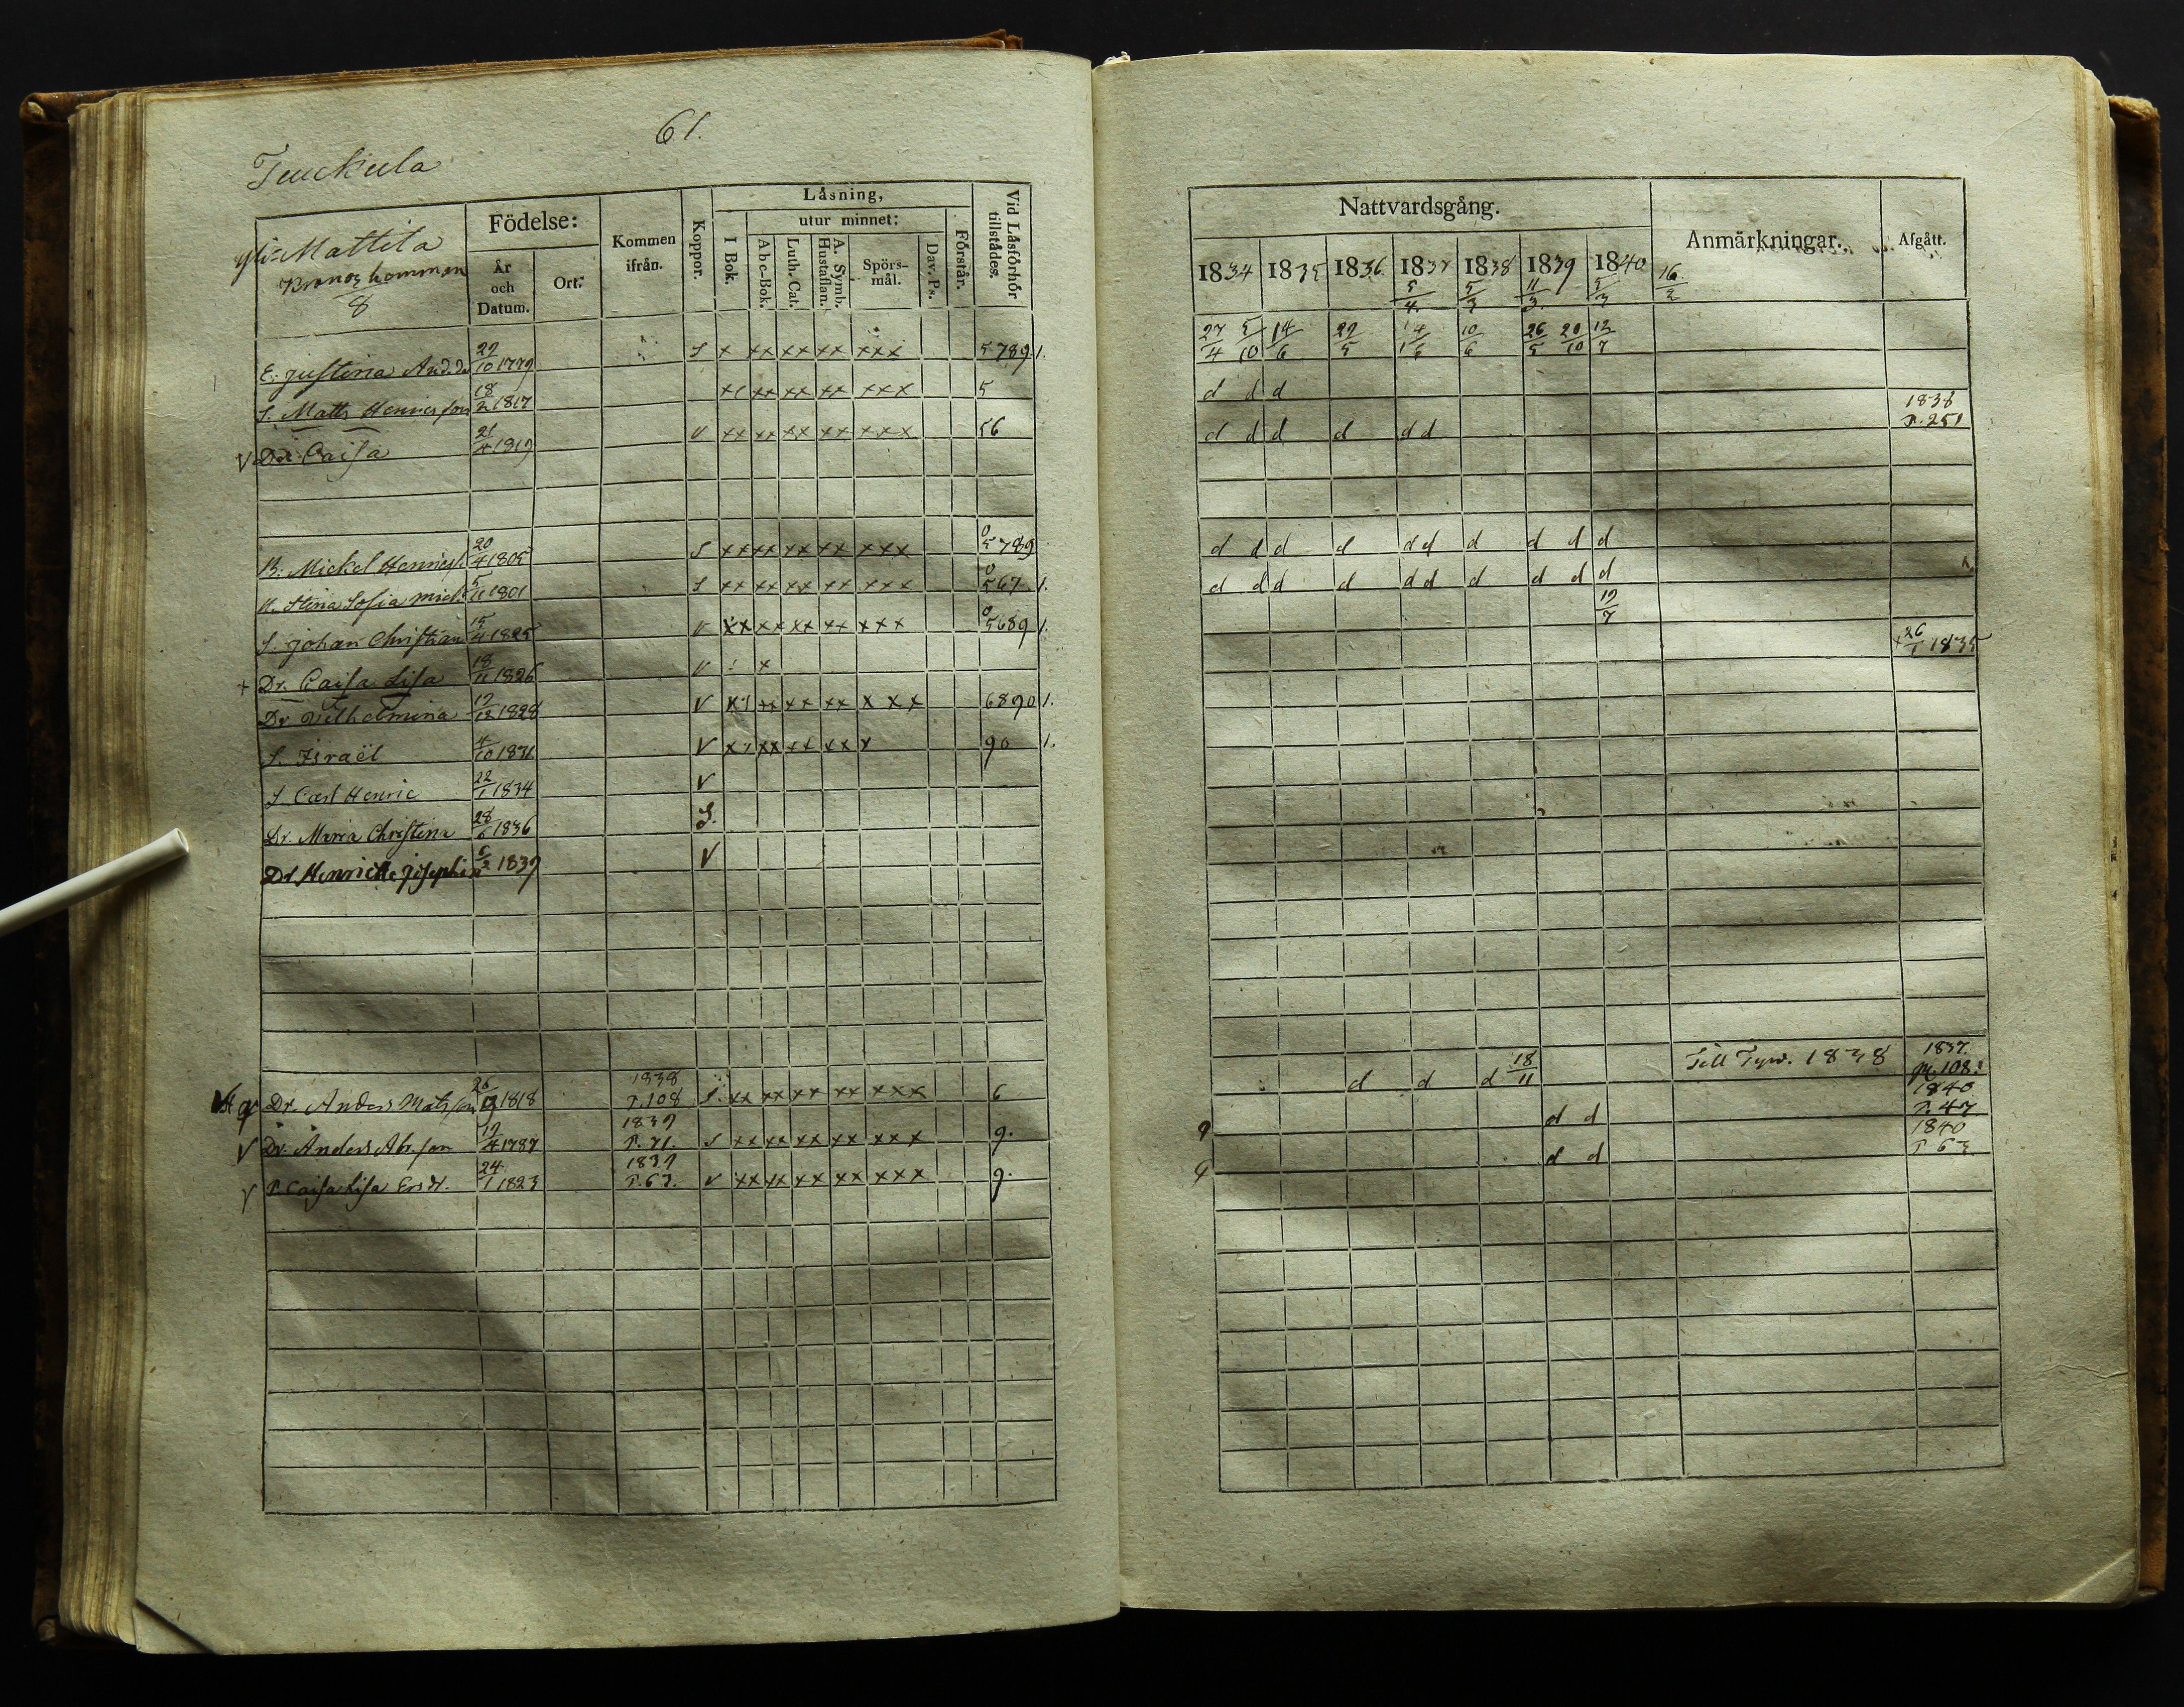 61.
Tuuckula
Yli-Mattila
Kronoz hemman
8
Födelse:
År och Datum.
Ort.
Kommen ifrån.
Koppor.
Läsning,
I Bok.
utur minnet:
Abc-Bok.
Luth. Cat.
A. Symb. Hustaflan.
Spörs-mål.
Dav. Ps.
Förstår.
Vid Läsförhör tillstådes.
E. Justina And.dr 22/10 1779 S x xx xx xx xxx 5789 1.
S. Matts Henricsson 18/2 1817 xx xx xx xxx 5
V Dr Caisa 21/4 1819 V xx xx xx xx xxx 56
B. Mickel Henricss. 20/4 1805 S xx xx xx xx xxx 0 5789
H. Stina Sofia Mich. 5/11 1801 S xx xx xx xx xxx 0 567 1.
S. Johan Christian 15/4 1825 V xx xx xx xx xxx 0 5689 1.
+ Dr. Caisa Lisa 18/11 1826 V x
Dr Vilhelmina 12/12 1828 V xx xx xx x x x 6890 1.
S. Israël 4/10 1831 V xx xx xx x 90 1.
S. Carl Henric 22/1 1834 V
Dr. Maria Christina 28/6 1836 S.
Dr Henricke Josephin 5/2 1839 V
Dr. Anders Mats son 26/9 1818 1838 P.108 S. xx xx xx xx xxx 6
V Dr. Anders Abr. son 12/4 1787 1839 P. 71. S xx xx xx xx xxx 9.
V P. Caisa Lisa Ersdr. 24/1 1823 1839 P.63. V xx xx xx xx xxx 9.
Nattvardsgång.
Anmärkningar.
Afgått.
1834 1835 1836 1837 1838 1839 1840
5/4 5/3 11/3 5/3 16/2
27/4 5/10 14/6 22/5 14/6 10/6 26/5 20/10 12/7
d d d
d d d d d d 1838 P. 251
d d d d d d d d d d
d d d d d d d d d d
12/7
+ 26/1 1835
d d d 18/11 Till Tyrv. 1838 1837. 108.
9 d d 1840 P. 47
9 d d 1840 P 63